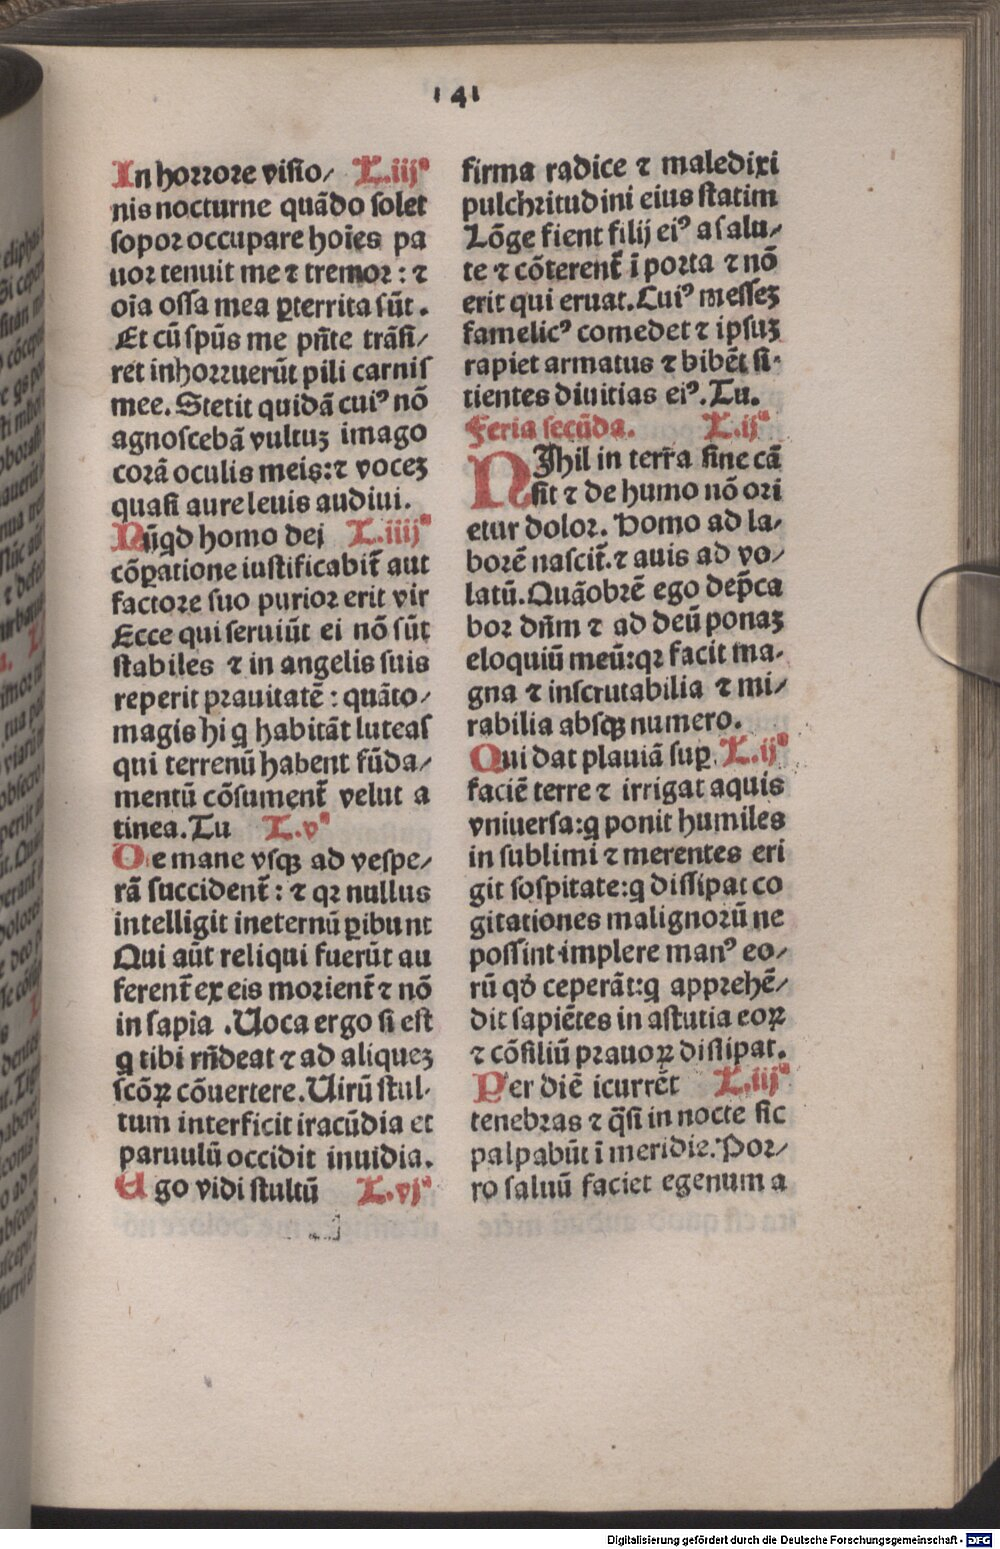 141
In horrore visio/ L.iijª
nis nocturne quādo solet
sopor occupare hoīes pa
uor tenuit me ⁊ tremor : ⁊
oīa ossa mea ꝑterrita sūt .
Et cū spūs me pn̄te trāsi/
ret inhorruerūt pili carnis
mee. Stetit quidā cuiꝰ nō
agnoscebā vultuꝫ imago
corā oculis meis:⁊ voceꝫ
quasi aure leuis audiui.
Nūqd homo dei L.iiijª
cōꝑatione iustificabit̄ aut
factore suo purior erit vir
Ecce qui seruiūt ei nō sūt
stabiles ⁊ in angelis suis
reperit prauitatē : quāto/
magis hi q habitāt luteas
qui terrenū habent fūda/
mentū cōsument̄ velut a
tinea. Tu L.vª
De mane vsqꝫ ad vespe/
rā succident̄ : ⁊ qꝛ nullus
intelligit ineternū ꝑibunt
Qui aūt reliqui fuerūt au
ferent̄ ex eis morient̄ ⁊ nō
in sapia . Uoca ergo si est
q tibi rn̄deat ⁊ ad aliqueꝫ
scōꝝ cōuertere. Uirū stul-
tum interficit iracūdia et
paruulū occidit inuidia.
Ego vidi stultū L.vjª
firma radice ⁊ maledixi
pulchritudini eius statim
Lōge fient filij eiꝰ a salu/
te ⁊ cōterent̄ ī porta ⁊ nō
erit qui eruat. Cuiꝰ messeꝫ
famelicꝰ comedet ⁊ ipsuꝫ
rapiet armatus ⁊ bibēt si-
tientes diuitias eiꝰ. Tu.
Feria secūda. L.jª
NJhil in terra sine cā
sit ⁊ de humo nō ori
etur dolor. Homo ad la/
borē nascit̄.⁊ auis ad vo/
latū. Quāobrē ego dep̄ca
bor dn̄m ⁊ ad deū ponaꝫ
eloquiū meū:qꝛ facit ma-
gna ⁊ inscrutabilia ⁊ mi/
rabilia absqꝫ numero.
Qui dat plauiā suꝑ L.ijª
faciē terre ⁊ irrigat aquis
vniuersa:q ponit humiles
in sublimi ⁊ merentes eri
git sospitate:q dissipat co
gitationes malignorū ne
possint implere manꝰ eo/
rū qd ceperāt:q apprehē/
dit sapiētes in astutia eoꝝ
⁊ cōsiliū prauoꝝ dissipat.
Per diē icurrēt L.iijª
tenebras ⁊ q̄si in nocte sic
palpabūt ī meridie. Por/
ro saluū faciet egenum a
Digitalisierung gefördert durch die Deutsche Forschungsgemeinschaft - DFG